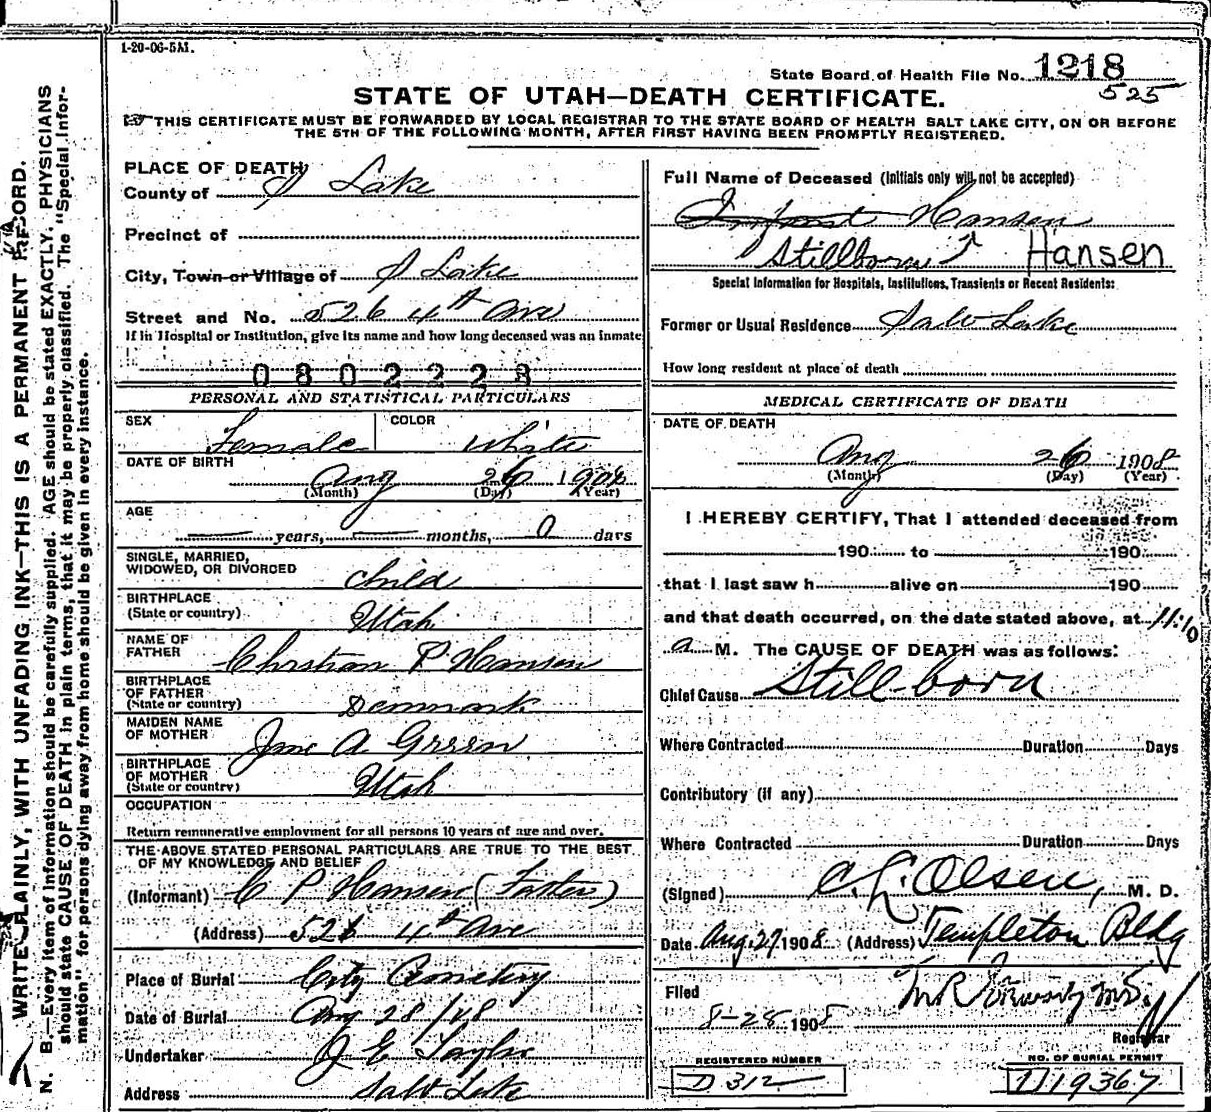 1-20-06-5M.
State Board of Health File No. 1218
525
STATE OF UTAH—DEATH CERTIFICATE.
THIS CERTIFICATE MUST BE FORWARDED BY LOCAL REGISTRAR TO THE STATE BOARD OF HEALTH SALT LAKE CITY, ON OR BEFORE
THE 5TH OF THE FOLLOWING MONTH, AFTER FIRST HAVING BEEN PROMPTLY REGISTERED.
WRITE PLAINLY, WITH UNFADING INK—THIS IS A PERMANENT RECORD.
N. B.—Every item of information should be carefully supplied. AGE should be stated EXACTLY. PHYSICIANS
should state CAUSE OF DEATH in plain terms, that it may be properly classified. The "Special Infor-
mation" for persons dying away from home should be given in every instance.
PLACE OF DEATH
County of S Lake
Precinct of
City, Town or Village of S Lake
Street and No. 526 4th Ave
If in Hospital or Institution, give its name and how long deceased was an inmate
0802228
PERSONAL AND STATISTICAL PARTICULARS
SEX Female COLOR White
DATE OF BIRTH Aug 26 1908
(Month) (Day) (Year)
AGE
— years, — months, 0 days
SINGLE, MARRIED,
WIDOWED, OR DIVORCED Child
BIRTHPLACE
(State or country) Utah
NAME OF
FATHER Chrstian P Hansen
BIRTHPLACE
OF FATHER
(State or country) Denmark
MAIDEN NAME
OF MOTHER A Green
BIRTHPLACE
OF MOTHER
(State or country) Utah
OCCUPATION
Return remunerative employment for all persons 10 years of age and over.
THE ABOVE STATED PERSONAL PARTICULARS ARE TRUE TO THE BEST
OF MY KNOWLEDGE AND BELIEF
(Informant) C P Hansen (Father)
(Address) 526 4th Ave
Place of Burial City Cemetery
Date of Burial Aug 28/08
Undertaker J E Taylor
Address Salt Lake
Full Name of Deceased (Initials only will not be accepted)
Infant Hansen
Stillborn ↑ Hansen
Special Information for Hospitals, Institutions, Transients or Recent Residents:
Former or Usual Residence Salt Lake
How long resident at place of death
MEDICAL CERTIFICATE OF DEATH
DATE OF DEATH
Aug 26 1908
(Month) (Day) (Year)
I HEREBY CERTIFY, That I attended deceased from
190 to 190
that I last saw h alive on 190
and that death occurred, on the date stated above, at 11:10
a M. The CAUSE OF DEATH was as follows:
Chief Cause Stillborn
Where Contracted Duration Days
Contributory (if any)
Where Contracted Duration Days
(Signed) C. L. Olsen, M. D.
Date Aug. 27, 1908 (Address) Templeton Bldg
Filed
8-28 1908
Registrar
REGISTERED NUMBER
D 312
NO. OF BURIAL PERMIT
D19367